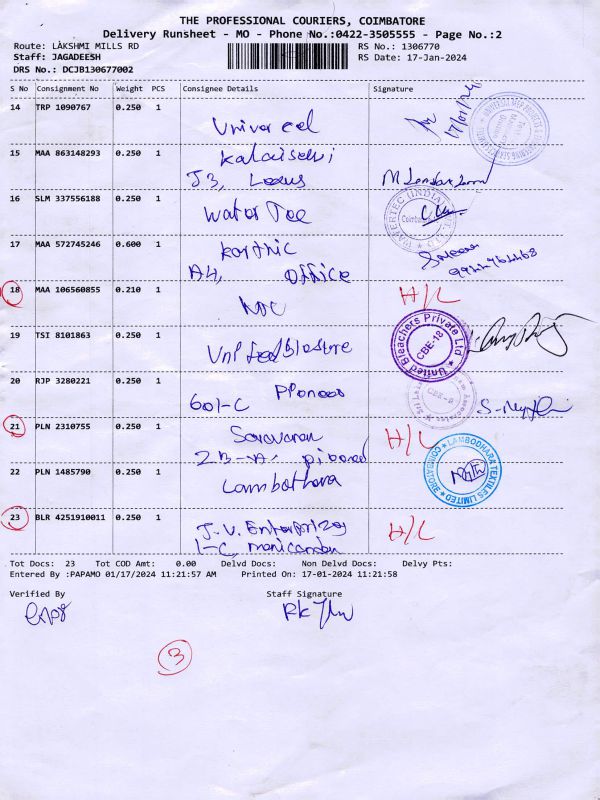 THE PROFESSIONAL COURIERS, COIMBATORE
Delivery Runsheet - MO - Phone No.:0422-3505555 - Page No.:2
Route: LAKSHMI MILLS RD RS No.: 1306770
Staff: JAGADEESH RS Date: 17-Jan-2024
DRS No.: DCJB130677002
S No Consignment No Weight PCS Consignee Details Signature
14 TRP 1090767 0.250 1
Univer cel
17/01/24
15 MAA 863148293 0.250 1
kalaiselvi
J3,
16 SLM 337556188 0.250 1
Water Tec
WATERTEC (INDIA)
Coimbatore
17 MAA 572745246 0.600 1
karthic
A4, office
18 MAA 106560855 0.210 1
H/C
19 TSI 8101863 0.250 1
United Bleachers Private Ltd
CBE-18
20 RJP 3280221 0.250 1
601-C
21 PLN 2310755 0.250 1
Saravanan
H/C
22 PLN 1485790 0.250 1
Lambothara
LAMBODHARA TEXTILES LIMITED
COIMBATORE
23 BLR 4251910011 0.250 1
J.V. Enterprizes
1-C manicandan
H/C
Tot Docs: 23 Tot COD Amt: 0.00 Delvd Docs: Non Delvd Docs: Delvy Pts:
Entered By :PAPAMO 01/17/2024 11:21:57 AM Printed On: 17-01-2024 11:21:58
Verified By Staff Signature
3